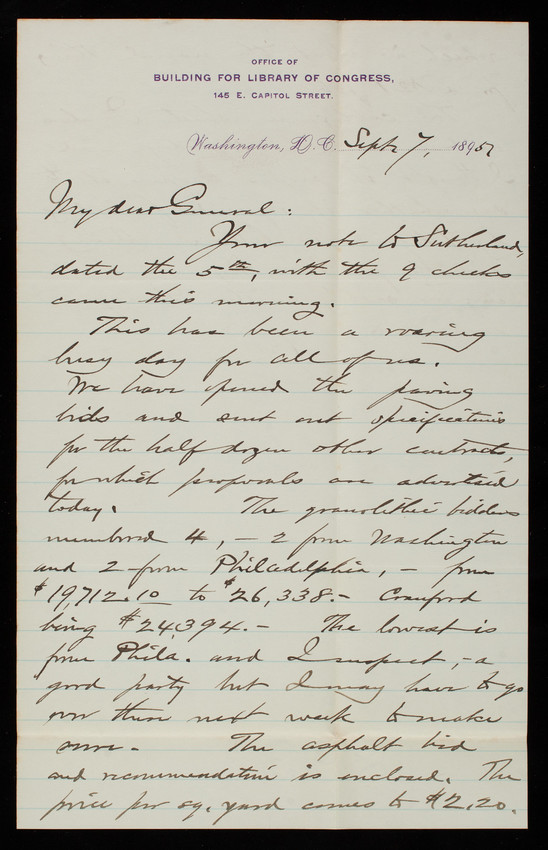 OFFICE OF
BUILDING FOR LIBRARY OF CONGRESS,
145 E. CAPITOL STREET.
Washington, D. C. Sept 7, 1895
My dear General:
Your note to Sutherland,
dated the 5th, with the 9 checks
came this morning.
This has been a roaring
busy day for all of us.
We have opened the paving
bids and sent out specifications
for the half dozen other contracts,
for which proposals are advertised
today. The granolithic bidders
numbered 4, – 2 from Washington
and 2 from Philadelphia, – from
$19,712.10 to $26,338.– Cranford
being $24,394.– The lowest is
from Phila. and I suspect, – a
good party but I may have to go
over there next week to make
sure. The asphalt bid
and recommendation is enclosed. The
price per sq. yard comes to $2.20.